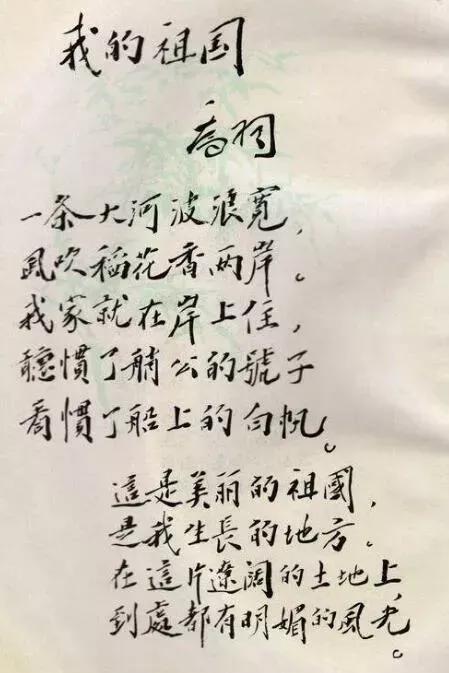 我的祖国
乔羽
一条大河波浪寬，
風吹稻花香两岸。
我家就在岸上住，
聽慣了艄公的號子
看慣了船上的白帆。
這是美丽的祖國，
是我生長的地方。
在這片遼阔的土地上，
到處都有明媚的風光。